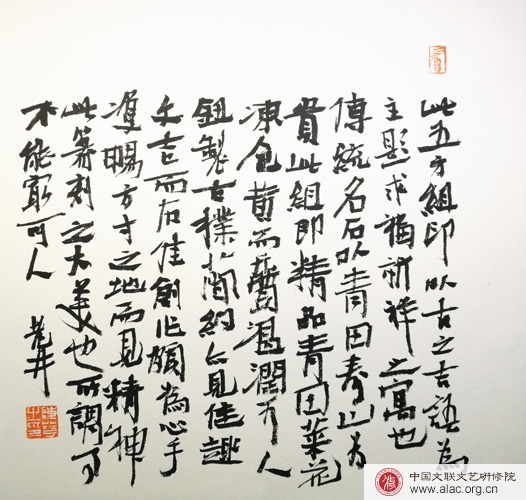 此五方組印以古之吉語為
主題求福祈祥之寓也
傳統名石以青田壽山為
貴此組即精品青田菜花
凍色黄而温潤可人
鈕製古樸簡約亦見佳趣
文吉而石佳創作頗為心手
雙暢方寸之地而見精神
此篆刻之大美也所
不能可人
中国文联文艺研修院
www.alac.org.cn